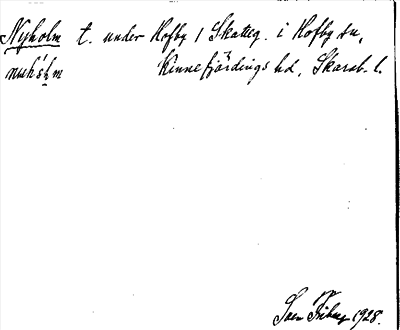 Nyholm t. under Hofby 1 Skatteg. i Hofby sn,
Kinnefjärdings hd, Skarab. l.
Sven 1928.